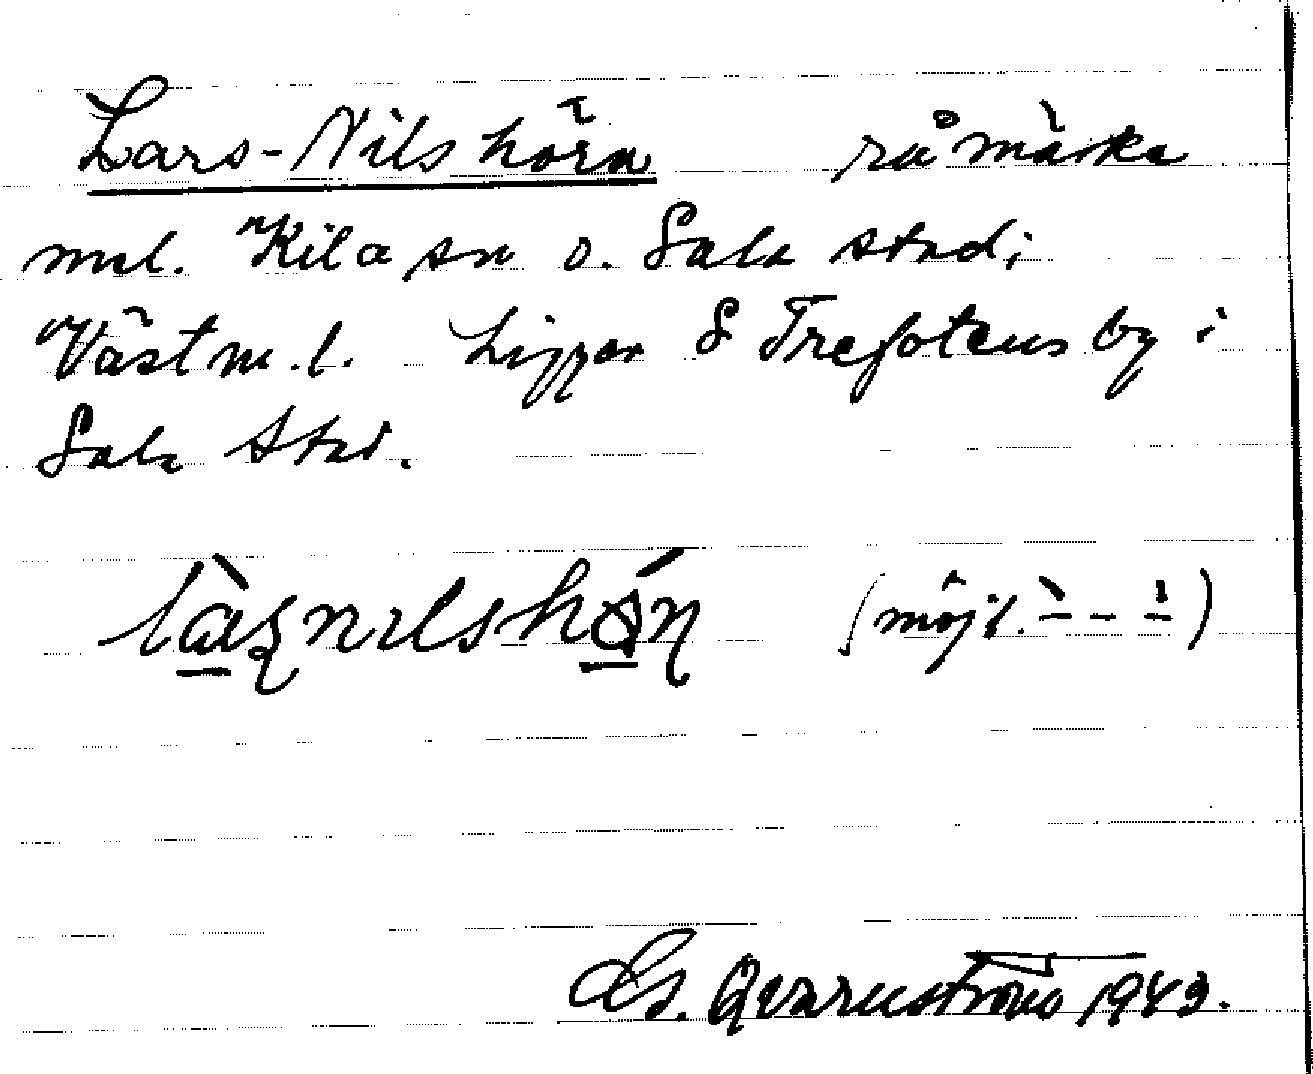 Lars-Nilshörn råmärke
mel. Kila sn o. Sala stad;
Västm.l. Ligger S Trefotens by i
Sala Stad.
là̱ʂnɪlshɔ̱́ɳ (möjl. )
G. Qvarnström 1943.